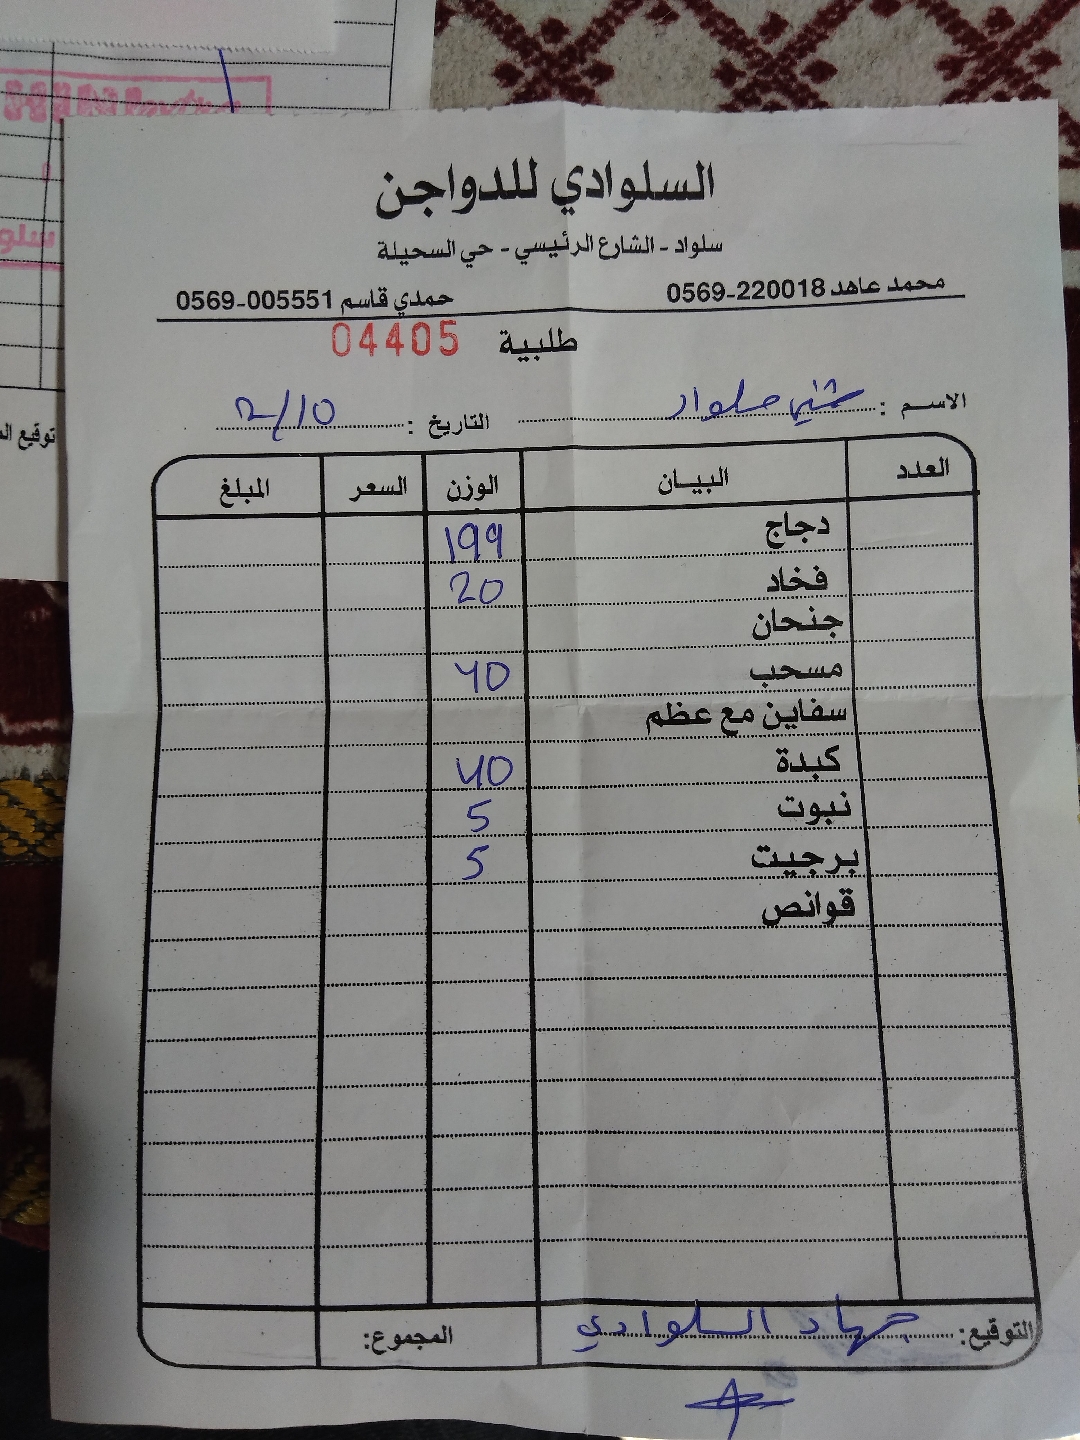 السلوادي للدواجن
سلواد - الشارع الرئيسي - حي السحيلة
محمد عاهد 0569-220018 حمدي قاسم 0569-005551
طلبية 04405
الاسم : سلواد التاريخ : 2/10
العدد البيـان الوزن السعر المبلغ
دجاج 199
فخاد 20
جنحان
مسحب 40
سفاين مع عظم
كبدة 40
نبوت 5
برجيت 5
قوانص
التوقيع: جهاد السلوادي المجموع:
سلو
توقيع